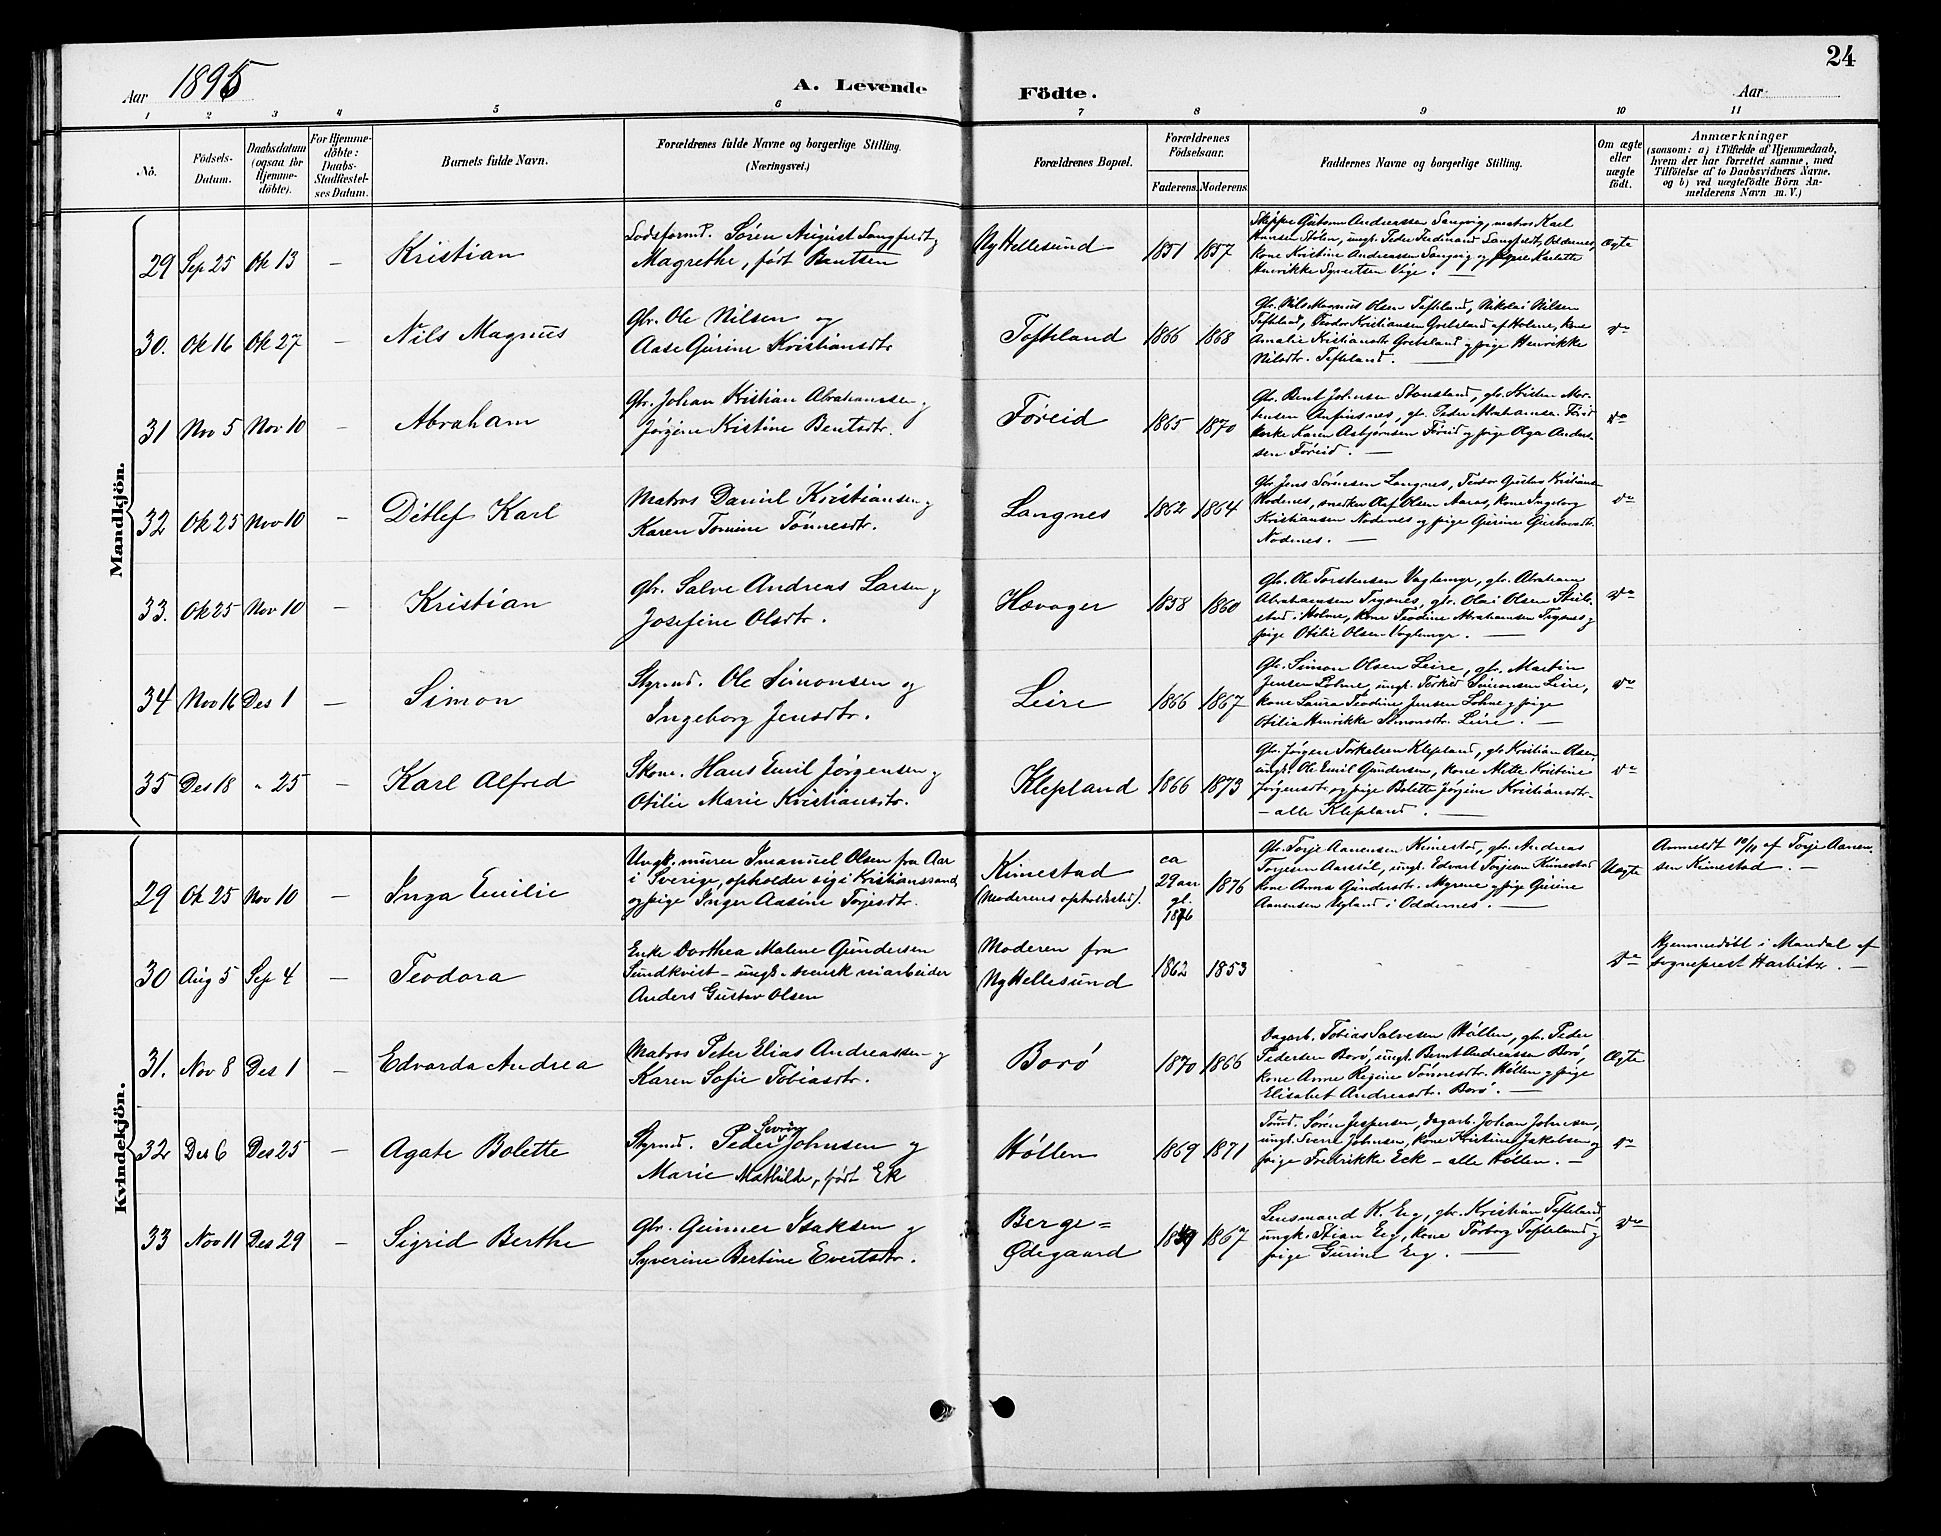 24
Aar 1895
A. Levende Födte.
Aar
1 2 3 4 5 6 7 8 9 10 11
No.
Födsels-
Datum.
Daabsdatum
(ogsaa for
Hjemme-
döbte).
For Hjemme-
döbte:
Daabs-
Stadfæstel-
ses Datum.
Barnets fulde Navn.
Forældrenes fulde Navne og borgerlige Stilling.
(Næringsvei.)
Forældrenes Bopæl.
Forældrenes
Födselsaar.
Faderens. Moderens.
Faddernes Navne og borgerlige Stilling.
Om ægte
eller
uægte
födt.
Anmærkninger
(saasom: a) i Tilfælde af Hjemmedaab,
hvem der har forrettet samme, med
Tilföielse af to Daabsvidners Navne,
og b) ved uægtefödte Börn An-
melderens Navn m. V.)
Mandkjön.
29 Sep 25 Ok 13 — Kristian
Lodsformd. Sören August Langfeldt og
Magrethe, født Bentsen
Ny Hellesund 1851 1857
Andreassen Sangvig, matros Karl
Hansen Stølen, ungk. Peder Ferdinand Langfeldt, Oddernes,
kone Kristine Andreassen Sangvig og pige Karlotte
Henrikke Syvertsen Vige. —
Ægte
30. Ok 16 Ok 27 — Nils Magnus
Gbr. Ole Nilsen og
Aase Gurine Kristiansdtr
Tofteland 1866 1868
Gbr. Nils Magnus Olsen Tofteland, Nikolai Nilsen
Tofteland, Teodor Kristiansen Grebsland af Holme, kone
Amalie Kristiansdtr Grebsland og pige Henrikke
Nilsdtr. Tofteland.
do
31 Nov 5 Nov 10 — Abraham
Gbr. Johan Kristian Abrahamssen og
Jørgine Kristine Bentsdtr.
Føreid 1865 1870
Gbr. Bent Johnsen Stousland, gbr. Kristen Mor-
tensen Anfinsnes, gbr. Peder Abrahamsen Føreid
kone Karen Asbjørnsen Føreid og pige Olga Anders-
sen Føreid. —
do
32 Ok 25 Nov 10 — Ditlef Karl
Matros Daniel Kristiansen og
Karen Tomine Tønnesdtr.
Langnes 1862 1864
Gbr. Jens Sørensen Langnes, Teodor Gustav Kristians.
Nodenes, snedker Olaf Olsen Aaras, kone Ingeborg
Kristiansen Nodenes og pige Gurine Gustavsdtr.
Nodenes. —
do
33. Ok 25 Nov 10 — Kristian
Gbr. Salve Andreas Larsen og
Josefine Olsdtr.
Hævager 1858 1860
Gbr. Ole Torstensen Vaglemyr, gbr. Abraham
Abrahamsen Trysnes, gbr. Olai Olsen
Holme, kone Teodine Abrahamsen Trysnes og
pige Otilie Olsen Vaglemyr. —
do
34 Nov 16 Des 1 — Simon
Styrmd. Ole Simonsen og
Ingeborg Jensdtr.
Leire 1866 1867
Gbr. Simon Olsen Leire, gbr. Martin
Jensen Lohne, ungk. Terkild Simonsen Leire,
kone Laura Teodine Jensen Lohne og pige
Otilia Henrikke Simonsdtr. Leire. —
do
35 Des 18 „ 25 — Karl Alfred
Skom. Hans Emil Jørgensen og
Otilie Marie Kristiansdtr.
Klepland 1866 1873
Gbr. Jørgen Torkelsen Klepland, gbr. Kristian Olsen,
ungk. Ole Emil Gundersen, kone Mette Kristine
Jørgensdtr. og pige Bolette Jørgine Kristiansdtr
— alle Klepland. —
do
Kvindekjön.
29 Ok 25 Nov 10 — Inga Emilie
Ungk. murer Imanuel Olsen fra Aar
i Sverige, opholder sig i Kristianssand,
og pige Inger Aasine Torjesdtr.
Kimestad
(Moderens opholdssted).
ca
29 aar
gl.
1876
Gbr. Torje Aanensen Kimestad, gbr. Andreas
Torjesen Aarstøl, ungk. Edvart Torjesen Kimestad
kone Anna Gundersdtr. Myrene og pige Gurine
Aanensen Vegland i Oddernes. —
Uægte
Anmeldt 10/11 af Torje Aanen-
sen Kimestad. —
30 Aug 5 Sep 4 — Teodora
Enke Dorthea Malene Gundersen
Sundkvist — ungk. svensk
Anders Gustav Olsen
Moderen fra
Ny Hellesund
1862 1853
do
Hjemmedøbt i Mandal af
sogneprest Harbitz. —
31. Nov 8 Des 1 — Edvarda Andrea
Matros Peter Elias Andreassen og
Karen Sofie Tobiasdtr.
Borø 1870 1866
Dagarb. Tobias Salvesen Høllen, gbr. Peder
Pedersen Borø, ungk. Bernt Andreassen Borø,
kone Anne Regine Tønnesdtr. Høllen og pige
Elisabet Andreasdtr. Borø. —
Ægte
32 Des 6 Des 25 — Agate Bolette
Styrmd. Peder Johnsen og
Marie Mathilde, født Ek
Høllen 1869 1871
Tømd. Søren Jespersen, dagarb. Johan Johnsen,
ungk. Svenn Johnsen, kone Kristine Jakobsen og
pige Fredrikke Eck — alle Høllen. —
do
33 Nov 11 Des 29 — Sigrid Berthe
Gbr. Gunner Isaksen og
Syverine Bertine Evertsdtr.
Berge=
Ødegaard
1867
Lensmand K. Eeg, gbr. Kristian Tofteland,
ungk. Stian Eeg, kone Torborg Tofteland og
pige Gurine Eeg. —
do